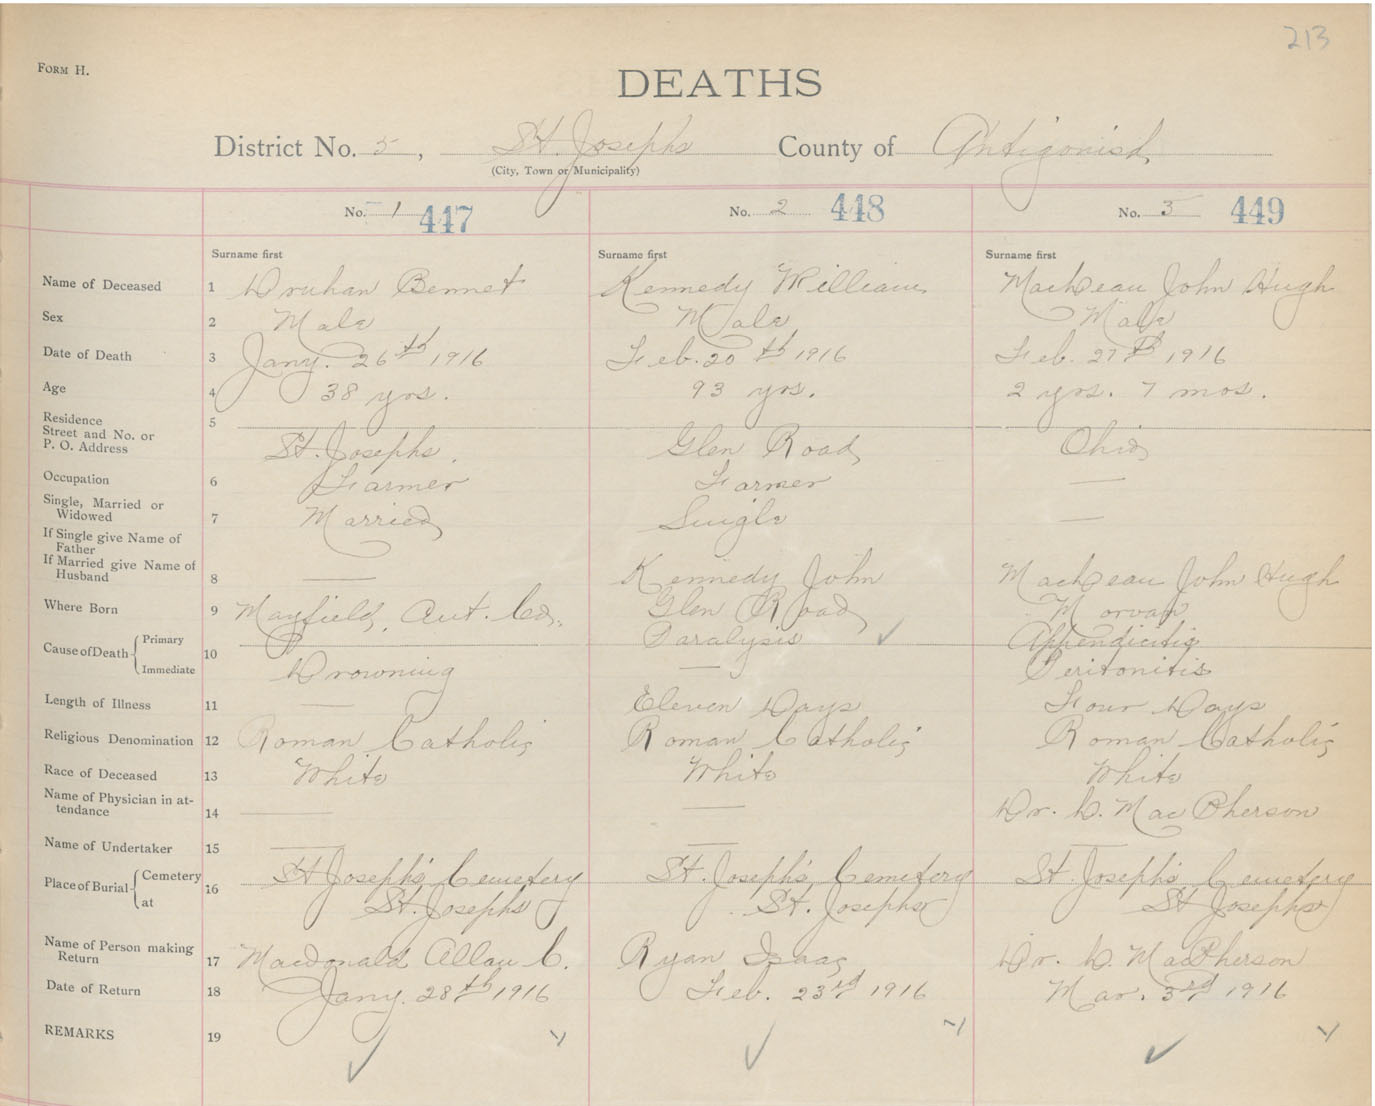 213
FORM H.
DEATHS
District No. 5, St. Josephs County of Antigonish
(City, Town or Municipality)
No. 1 447 No. 2 448 No. 3 449
Surname first Surname first Surname first
Name of Deceased 1 Druhan Bennet Kennedy William John Hugh
Sex 2 Male Male Male
Date of Death 3 Jany. 26th 1916 Feb. 20th 1916 Feb. 27th 1916
Age 4 38 yrs. 93 yrs. 2 yrs. 7 mos.
Residence
Street and No. or
P. O. Address 5 St. Josephs. Glen Road Ohio
Occupation 6 Farmer Farmer —
Single, Married or
Widowed 7 Married Single —
If Single give Name of
Father
If Married give Name of
Husband 8 — Kennedy John John Hugh
Where Born 9 Mayfield, Ant. Co. Glen Road Morvan
Cause of Death { Primary 10 Paralysis Appendicitis
Immediate Drowning — Peritonitis
Length of Illness 11 — Eleven Days Four Days
Religious Denomination 12 Roman Catholic Roman Catholic Roman Catholic
Race of Deceased 13 White White White
Name of Physician in at-
tendance 14 — — Dr. D. MacPherson
Name of Undertaker 15 — — —
Place of Burial { Cemetery 16 St. Joseph's Cemetery St. Joseph's Cemetery St. Joseph's Cemetery
at St. Josephs St. Josephs St Josephs
Name of Person making
Return 17 Macdonald Allan C. Ryan Isaac Dr. D. MacPherson
Date of Return 18 Jany. 28th 1916 Feb. 23rd 1916 Mar. 3rd 1916
REMARKS 19